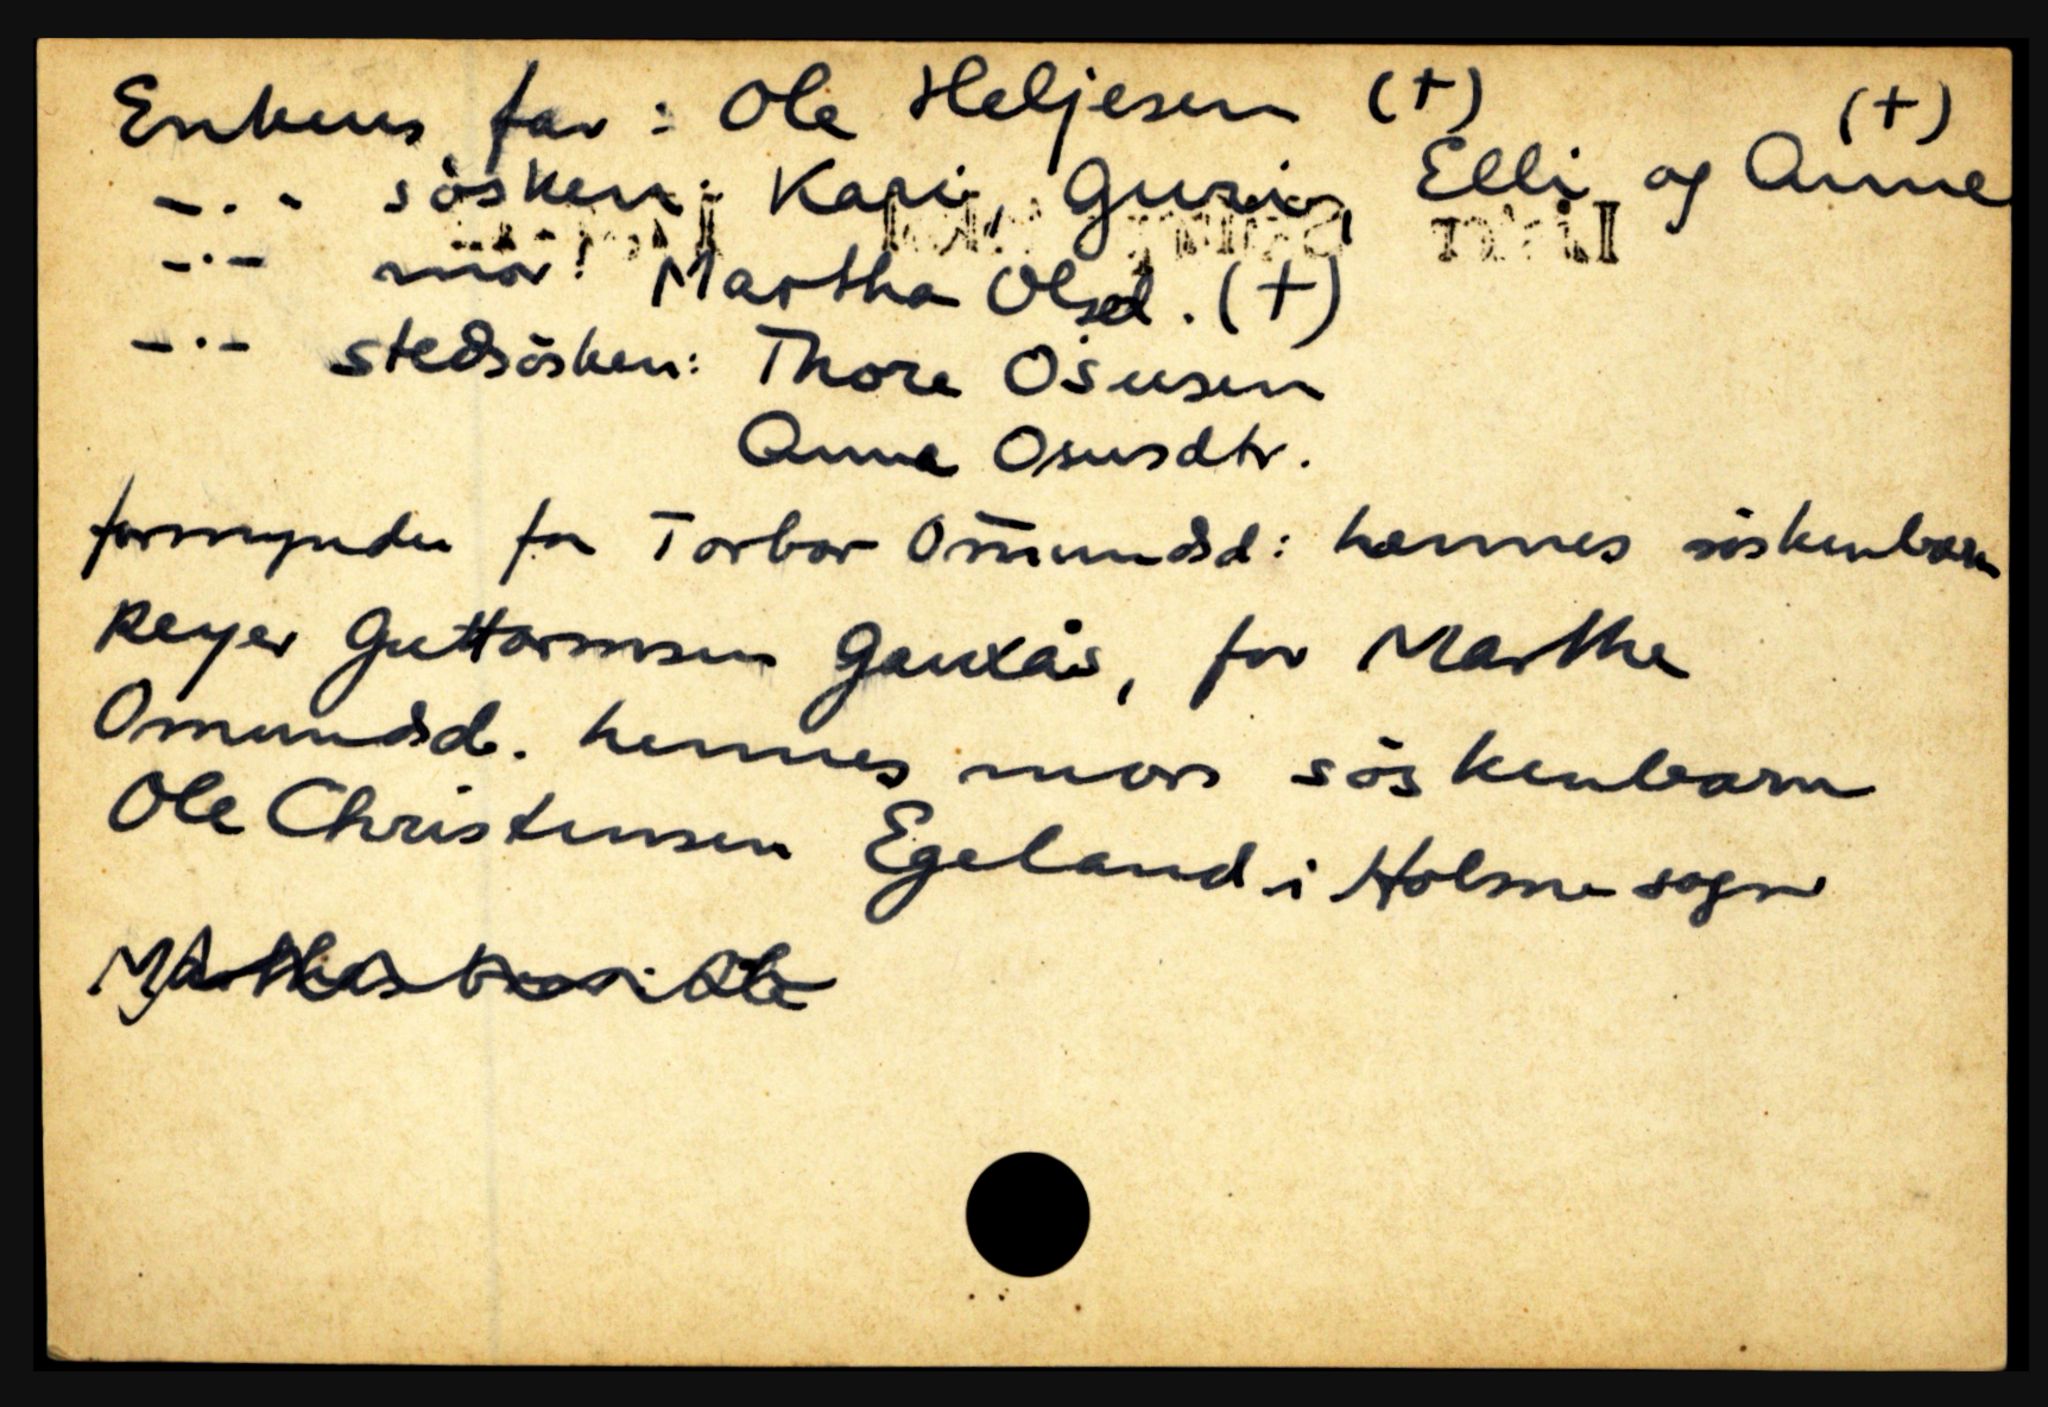 Enkens far : Ole Heljesen (+)
-.- søsken: Kari, Guri, Elli og Anne (+)
-.- mor: Martha Olsd. (+)
-.- stedsøsken: Thore Osusen
Anna Osusdtr.
formynder for Torbor Omundsd: hennes søskenbarn
Reyer Guttormsen Gauxås, for Martha
Omundsd. hennes mors søskenbarn
Ole Christensen Egeland i Holme sogn